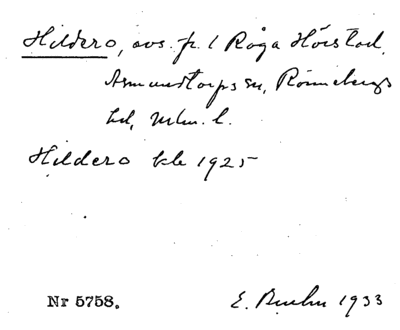 Hildero, avs. fr. 1 Röga Hörstad,
Asmundtorps sn, Rönnebergs
hd, Mlm. l.
Hildero kle 1925
Nr 5758. E. 1933